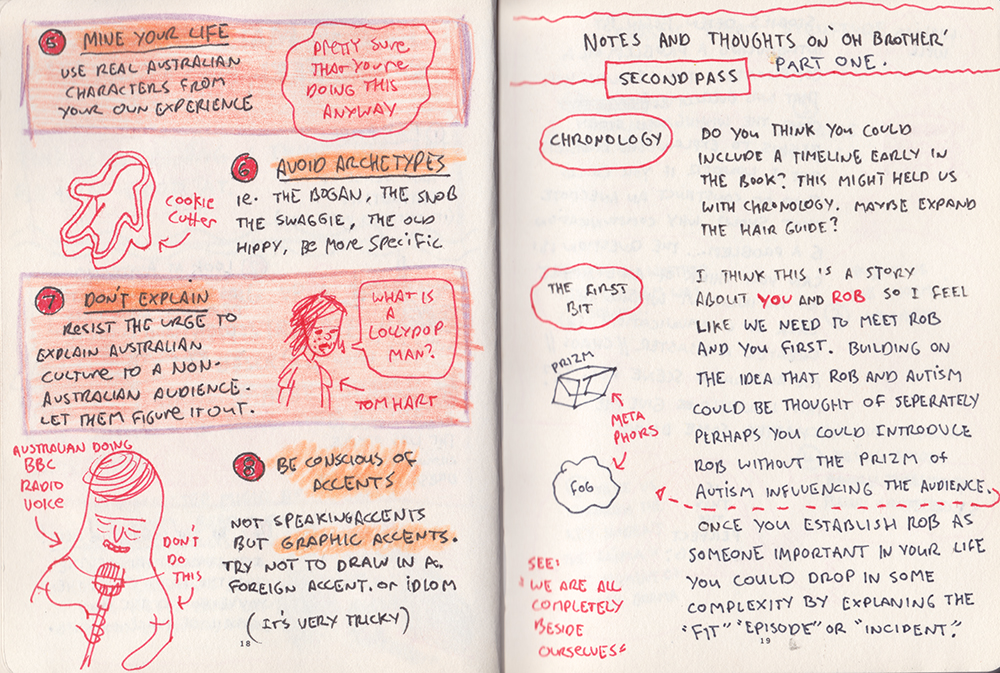 5 MINE YOUR LIFE
USE REAL AUSTRALIAN
CHARACTERS FROM
YOUR OWN EXPERIENCE
PRETTY SURE
THAT YOU'RE
DOING THIS
ANYWAY
6 AVOID ARCHETYPES
ie. THE BOGAN, THE SNOB
THE SWAGGIE, THE OLD
HIPPY, BE MORE SPECIFIC
COOKIE
CUTTER
7 DON'T EXPLAIN
RESIST THE URGE TO
EXPLAIN AUSTRALIAN
CULTURE TO A NON-
AUSTRALIAN AUDIENCE.
LET THEM FIGURE IT OUT.
WHAT IS
A
LOLLYPOP
MAN?
TOM HART
AUSTRALIAN DOING
BBC
RADIO
VOICE
DON'T
DO
THIS
8 BE CONSCIOUS OF
ACCENTS
NOT SPEAKING ACCENTS
BUT GRAPHIC ACCENTS.
TRY NOT TO DRAW IN A
FOREIGN ACCENT, OR IDIOM
(IT'S VERY TRICKY)
18
NOTES AND THOUGHTS ON 'OH BROTHER'
PART ONE.
SECOND PASS
CHRONOLOGY
DO YOU THINK YOU COULD
INCLUDE A TIMELINE EARLY IN
THE BOOK? THIS MIGHT HELP US
WITH CHRONOLOGY. MAYBE EXPAND
THE HAIR GUIDE?
THE FIRST
BIT
I THINK THIS IS A STORY
ABOUT YOU AND ROB SO I FEEL
LIKE WE NEED TO MEET ROB
AND YOU FIRST. BUILDING ON
THE IDEA THAT ROB AND AUTISM
COULD BE THOUGHT OF SEPERATELY
PERHAPS YOU COULD INTRODUCE
ROB WITHOUT THE PRIZM OF
AUTISM INFLUENCING THE AUDIENCE.
PRIZM
META
PHORS
FOG
ONCE YOU ESTABLISH ROB AS
SOMEONE IMPORTANT IN YOUR LIFE
YOU COULD DROP IN SOME
COMPLEXITY BY EXPLANING THE
"FIT" "EPISODE" OR "INCIDENT."
SEE:
"WE ARE ALL
COMPLETELY
BESIDE
OURSELVES"
19